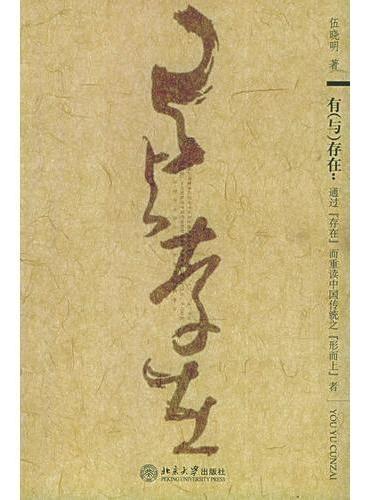 伍晓明 著
有(与)存在：
通过『存在』而重读中国传统之『形而上』者
YOU YU CUNZAI
与存在
北京大学出版社
PEKING UNIVERSITY PRESS